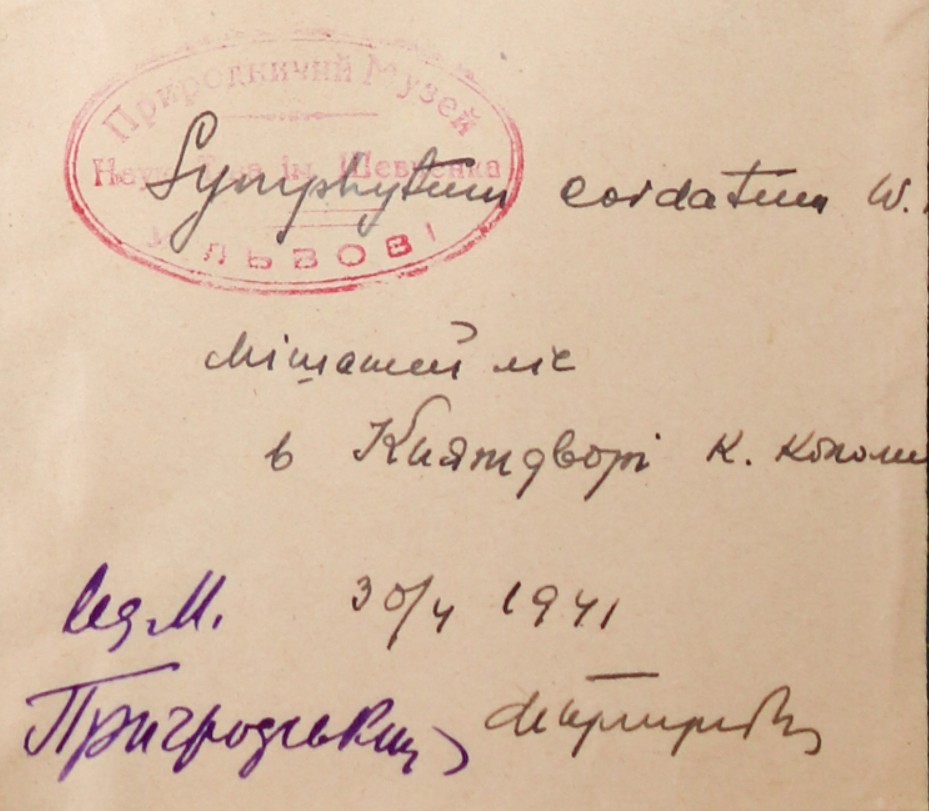 Природничий Музей
Наук. Т-ва ім. Шевченка
У ЛЬВОВІ
Symphytum cordatum W.
мішаний ліс
в Княждворі к. Коломи
30/4 1941
Пригродський